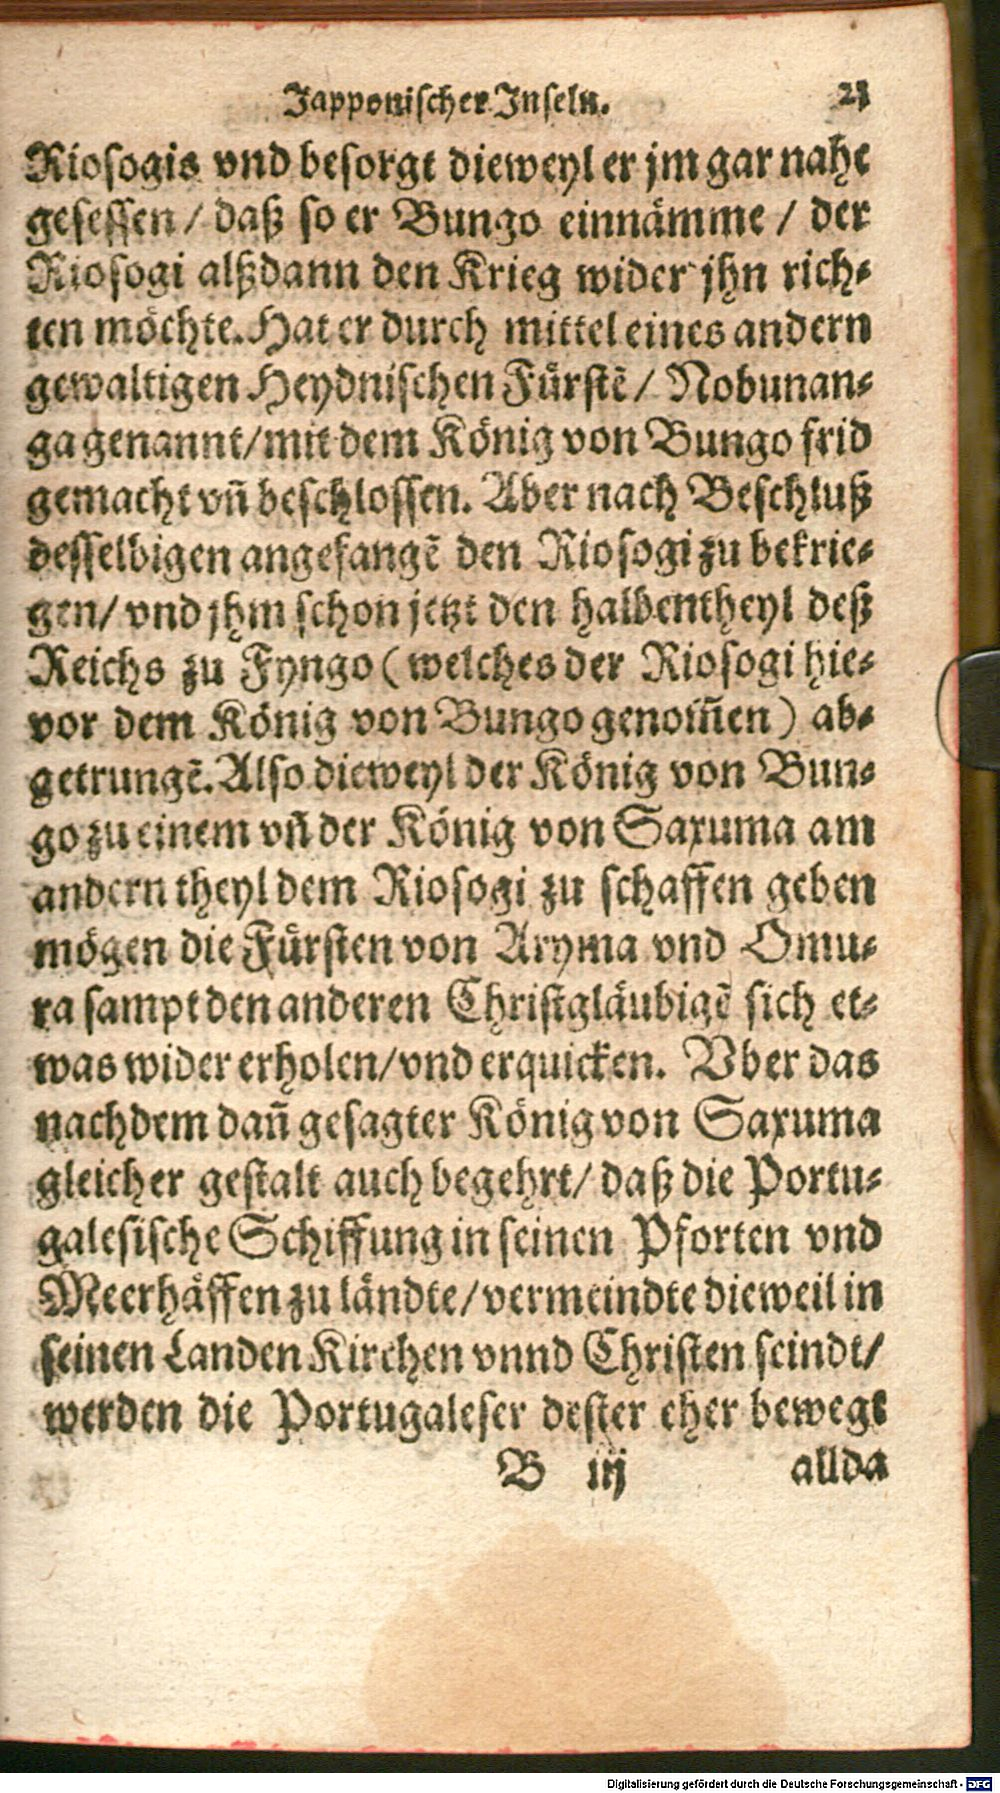 Japponischer Inseln. 23
Riosogis vnd besorgt dieweyl er jm gar nahe
gesessen / daß so er Bungo einnämme / der
Riosogi alßdann den Krieg wider jhn rich-
ten möchte. Hat er durch mittel eines andern
gewaltigen Heydnischen Fürstē / Nobunan-
ga genannt / mit dem König von Bungo frid
gemacht vn̄ beschlossen. Aber nach Beschluß
desselbigen angefangē den Riosogi zu bekrie-
gen / vnd jhm schon jetzt den halben theyl deß
Reichs zu Fyngo ( welches der Riosogi hie-
vor dem König von Bungo genom̄en ) ab-
getrungē. Also dieweyl der König von Bun-
go zu einem vn̄ der König von Saxuma am
andern theyl dem Riosogi zu schaffen geben
mögen die Fürsten von Aryma vnd Omu-
ra sampt den anderen Christgläubigē sich et-
was wider erholen / vnd erquicken. Vber das
nachdem dan̄ gesagter König von Saxuma
gleicher gestalt auch begehrt / daß die Portu-
galesische Schiffung in seinen Pforten vnd
Meerhäffen zu ländte / vermeindte dieweil in
seinen Landen Kirchen vnnd Christen seindt /
werden die Portugaleser dester eher bewegt
B iij allda
Digitalisierung gefördert durch die Deutsche Forschungsgemeinschaft - DFG